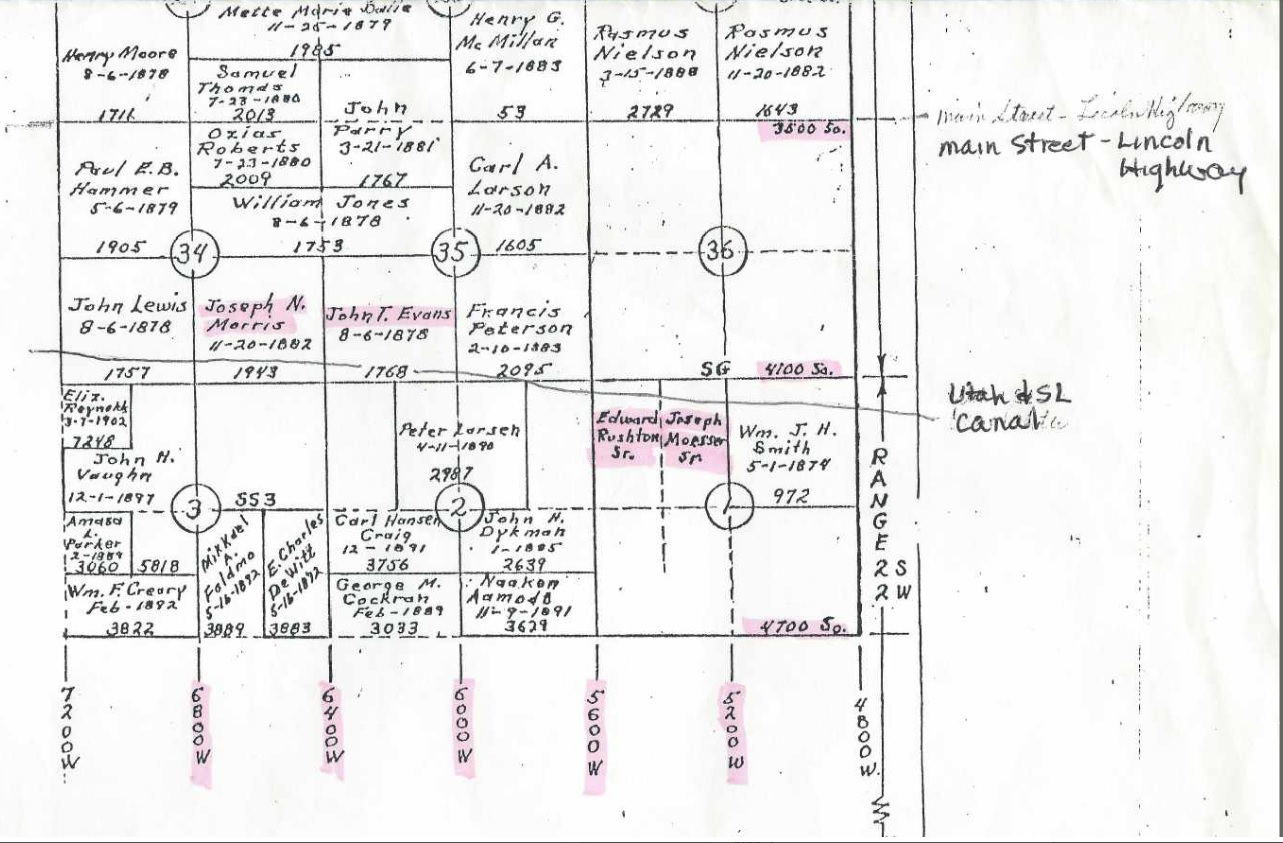 Mette Marie Balle
11-25-1879
1985
Henry Moore
8-6-1878
1711
Samuel
Thomas
7-23-1880
2013
John
Parry
3-21-1881
1767
Henry G.
McMillan
6-7-1883
53
Rasmus
Nielson
3-15-1888
2729
Rasmus
Nielson
11-20-1882
1643
3500 So.
main Street - Lincoln Highway
main Street - Lincoln
Highway
Paul E.B.
Hammer
5-6-1879
1905
Ozias
Roberts
7-23-1880
2009
William Jones
8-6-1878
1753
Carl A.
Larson
11-20-1882
1605
34
35
36
John Lewis
8-6-1878
1757
Joseph N.
Morris
11-20-1882
1943
John T. Evans
8-6-1878
1768
Francis
Peterson
2-10-1883
2095
SG
4100 So.
Utah & SL
Canal
Eliz.
Reynolds
3-7-1902
7248
John H.
Vaughn
12-1-1897
Peter Larsen
4-11-1890
2987
Edward
Rushton
Sr.
Joseph
Moesser
Sr.
Wm. J. H.
Smith
5-1-1874
972
3
SS3
2
1
RANGE 22
SW
Amasa
L.
Parker
2-1889
3060
5818
Mikkael
A.
Foldmo
5-16-1892
3889
E. Charles
DeWitt
5-16-1892
3883
Carl Hansen
Craig
12-1891
3756
John H.
Dykman
1-1885
2639
Wm. F. Creary
Feb-1892
3822
George M.
Cockran
Feb-1889
3033
Haaken
Aamodt
11-9-1891
3629
4700 So.
7200W
6800W
6400W
6000W
5600W
5200W
4800W.